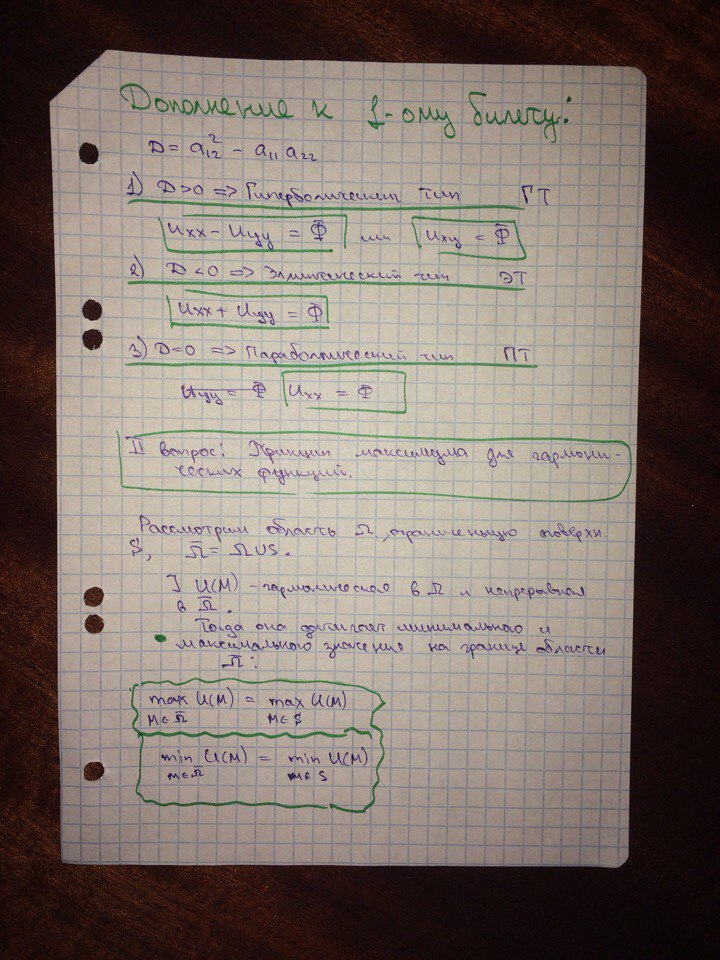 Дополнение к 1-ому билету:
D = a₁₂² - a₁₁ a₂₂
1) D>0 => Гиперболический тип ГТ
Uxx - Uyy = Φ̄ или Uxy = Φ̄
2) D<0 => Эллиптический тип ЭТ
Uxx + Uyy = Φ̄
3) D=0 => Параболический тип ПТ
Uyy = Φ̄ Uxx = Φ̄
II вопрос: Принцип максимума для гармони-
ческих функций.
Рассмотрим область Ω, ограниченную поверхн.
S, Ω̄ = Ω∪S.
] U(M) - гармоническая в Ω и непрерывная
в Ω̄.
Тогда она достигает минимального и
максимального значения на границе области
Ω̄:
max U(M) = max U(M)
M∈Ω̄ M∈S
min U(M) = min U(M)
M∈Ω̄ M∈S